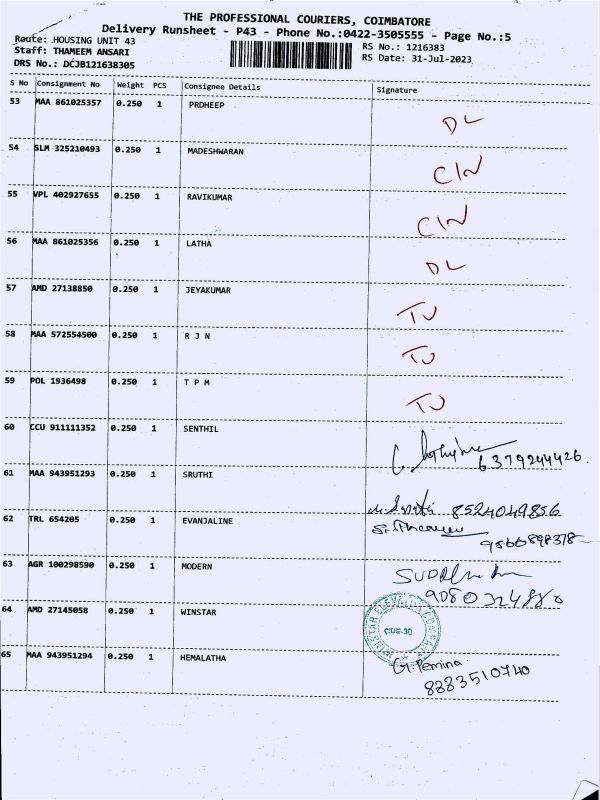 THE PROFESSIONAL COURIERS, COIMBATORE
Delivery Runsheet - P43 - Phone No.:0422-3505555 - Page No.:5
Route: HOUSING UNIT 43
Staff: THAMEEM ANSARI
DRS No.: DCJB121638305
RS No.: 1216383
RS Date: 31-Jul-2023
S No Consignment No Weight PCS Consignee Details Signature
53 MAA 861025357 0.250 1 PRDHEEP DL
54 SLM 325210493 0.250 1 MADESHWARAN CIN
55 VPL 402927655 0.250 1 RAVIKUMAR CIN
56 MAA 861025356 0.250 1 LATHA DL
57 AMD 27138850 0.250 1 JEYAKUMAR TU
58 MAA 572554500 0.250 1 R J N TU
59 POL 1936498 0.250 1 T P M TU
60 CCU 911111352 0.250 1 SENTHIL 6379244426
61 MAA 943951293 0.250 1 SRUTHI 8524049856
62 TRL 654205 0.250 1 EVANJALINE
63 AGR 100298590 0.250 1 MODERN
64 AMD 27145058 0.250 1 WINSTAR
65 MAA 943951294 0.250 1 HEMALATHA G. Pemina
8883510740